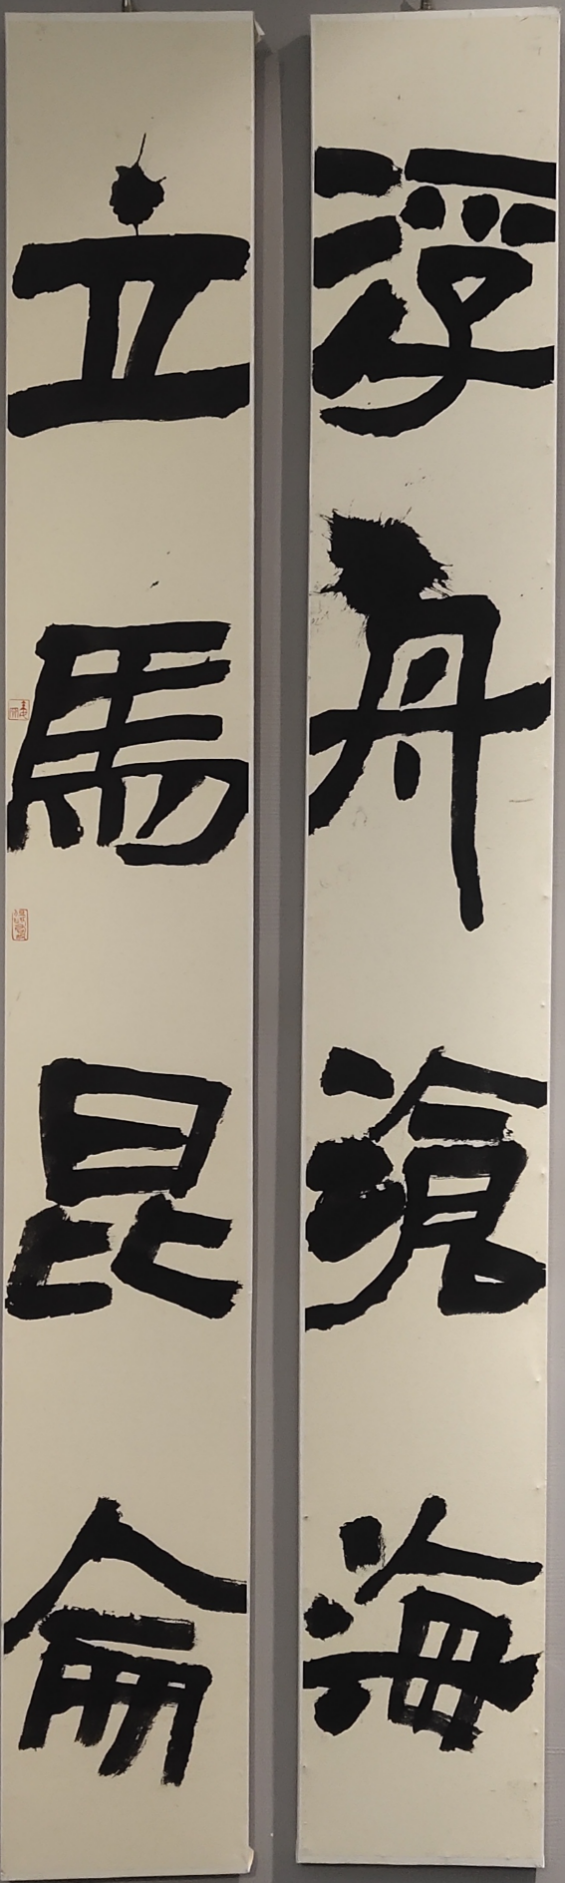 浮舟滄海
立馬昆侖